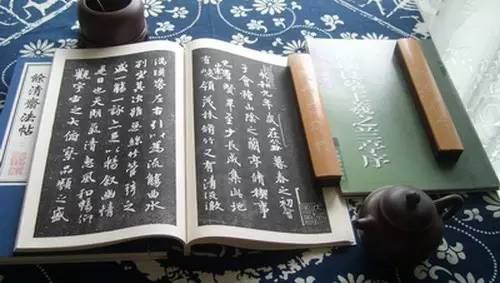 羲之蘭亭序
永和九年歲在癸丑暮春之初會
于會稽山陰之蘭亭脩禊事
也羣賢畢至少長咸集此地
有崇山峻領茂林脩竹又有清流激
湍暎帶左右引以為流觴曲水
列坐其次雖無絲竹管弦之
盛一觴一詠亦足以暢敘幽情
是日也天朗氣清惠風和暢仰
觀宇宙之大俯察品類之盛
餘清齋法帖